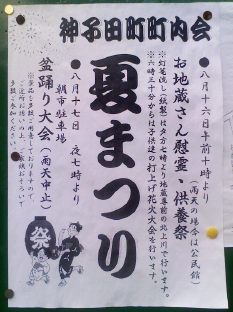 神子田町町内会
●八月十六日午前十時より
(雨天の場合は公民館)
お地蔵さん慰霊・供養祭
※灯篭流し(紙製)は夕方七時より地蔵尊前の北上川で行います。
※六時三十分からは子供達の打上げ花火大会を行います。
夏まつり
●八月十七日 夜七時より
朝市駐車場
盆踊り大会(雨天中止)
※景品も多数ご用意しておりますので、
ご近所お誘いの上、大勢おそろいで
ご参加ください。
祭